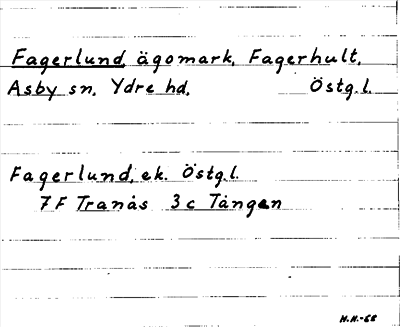 Fagerlund ägomark, Fagerhult,
Asby sn. Ydre hd. Östg.l.
Fagerlund, ek. Östg.l.
7F Tranås 3c Tången
H.H.-68